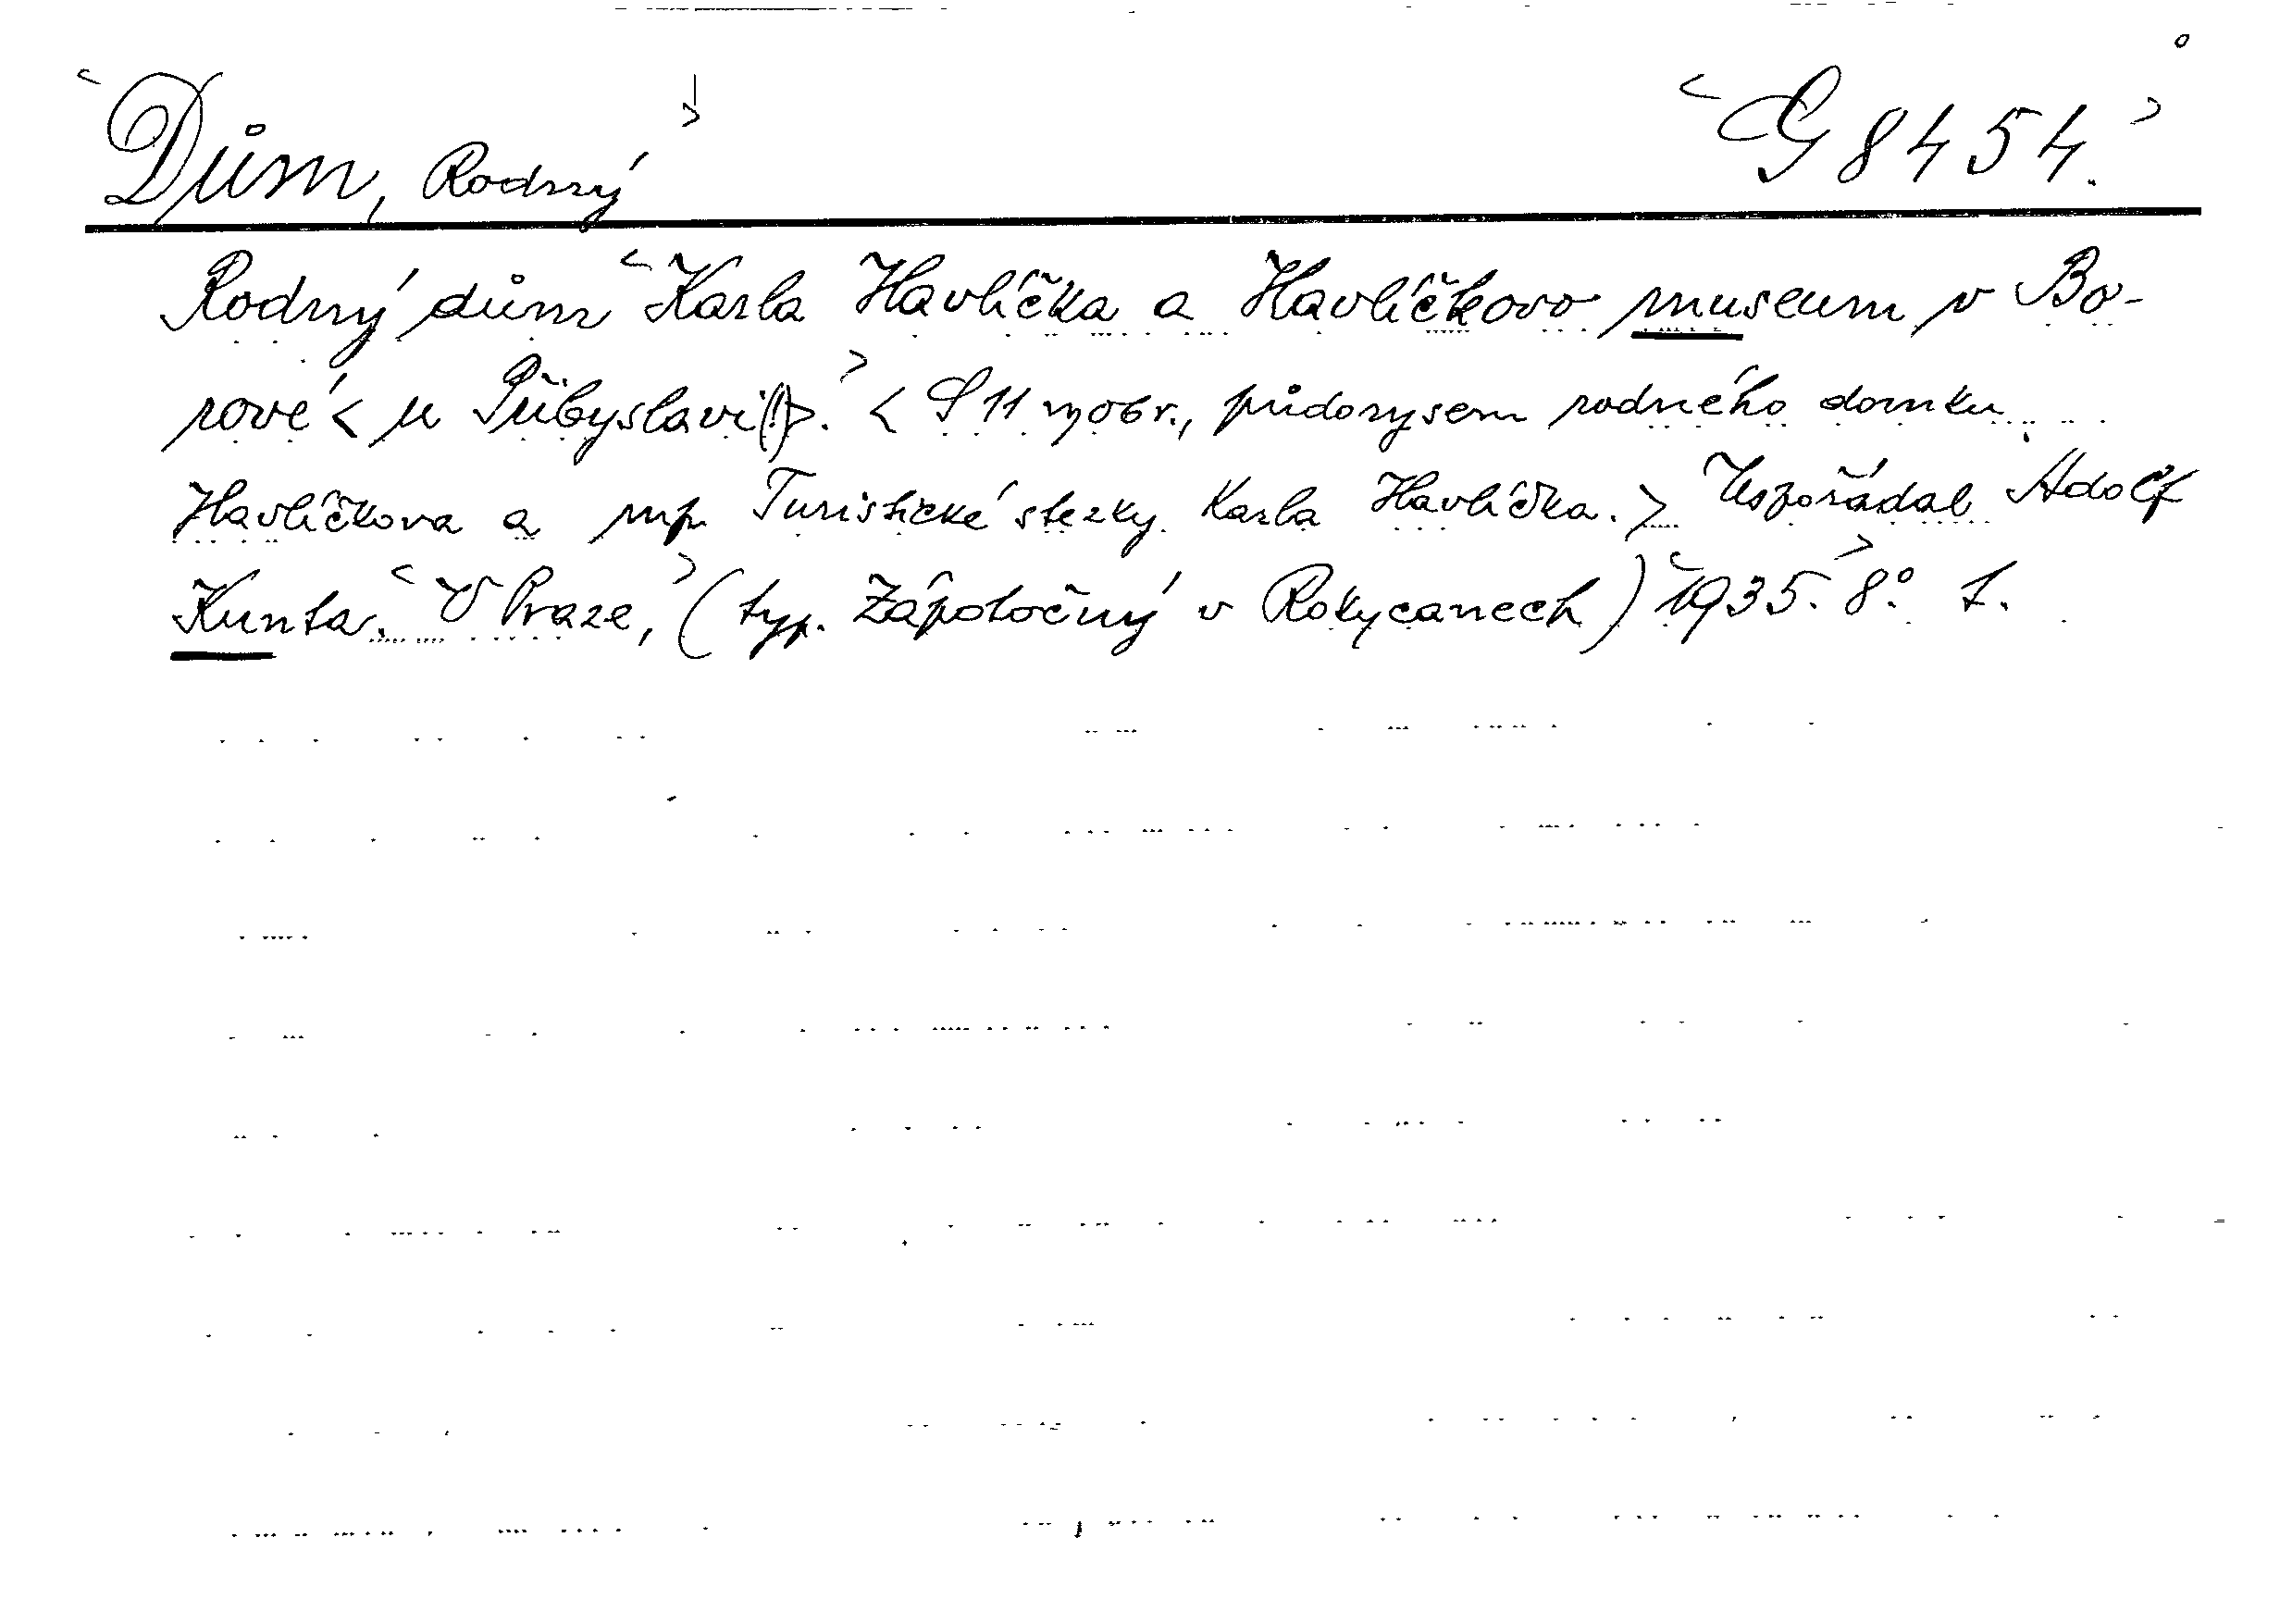 <Dům, Rodný> <G 8454.>
Rodný dům <Karla Havlíčka a Havlíčkovo museum v Bo-
rové < u Přibyslavi()>.> < S 11 vyobr., půdorysem rodného domku
Havlíčkova a mp. Turistické stezky Karla Havlíčka.> Uspořádal Adolf
Kunta. <V Praze,> (typ. Zápotočný v Rokycanech) <1935.> 8° 1.